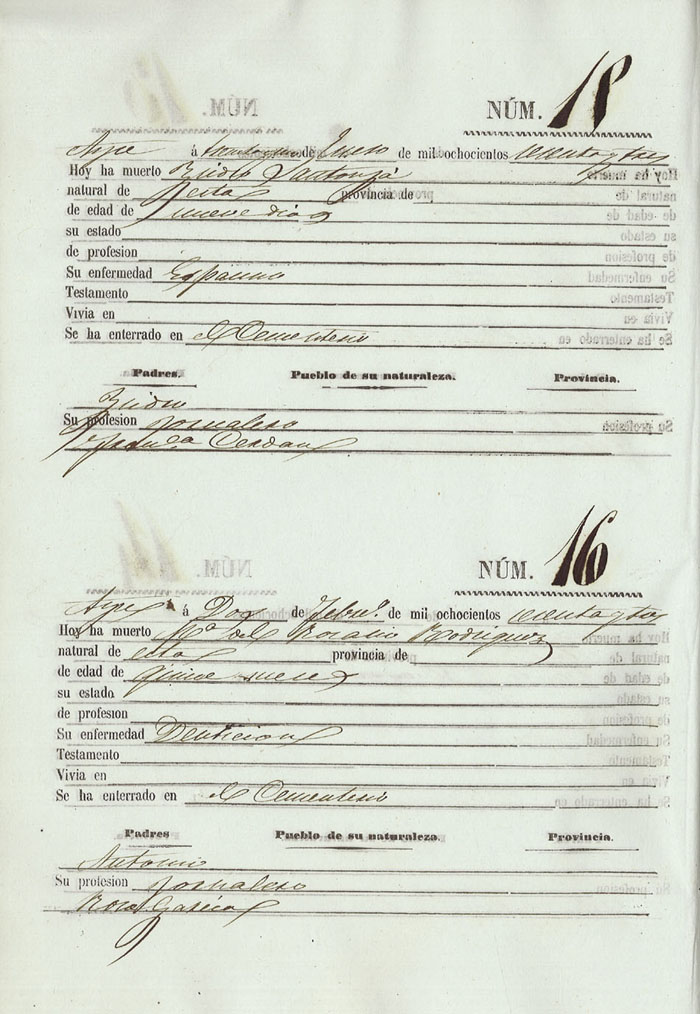 NÚM. 15
Aspe á treinta y uno de Enero de mil ochocientos sesenta y tres
Hoy ha muerto Santonja
natural de esta provincia de
de edad de nueve dias
su estado
de profesion
Su enfermedad Espasmo
Testamento
Vivia en
Se ha enterrado en el Cementerio
Padres. Pueblo de su naturaleza. Provincia.
Su profesion Jornalero
Cerdan
NÚM. 16
Aspe á Dos de Febro. de mil ochocientos sesenta y tres
Hoy ha muerto Mª del Rosario Rodriguez
natural de esta provincia de
de edad de quince meses
su estado
de profesion
Su enfermedad Denticion
Testamento
Vivia en
Se ha enterrado en el Cementerio
Padres Pueblo de su naturaleza. Provincia.
Antonio
Su profesion Jornalero
Rosa Garcia